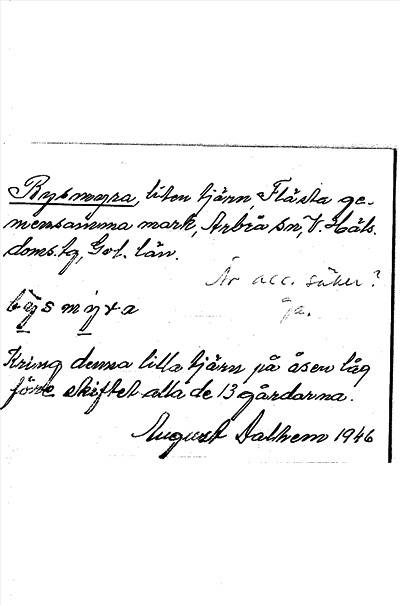 Bysmyra, liten tjärn, Flästa ge-
mensamma mark, Arbrå sn, V. Häls.
doms. tg, Gvl. län.
Är acc. säker?
b`y s m ý r a
Ja.
Kring denna lilla tjärn på åsen låg
före skiftet alla de 13 gårdarna.
August Dalhem 1946